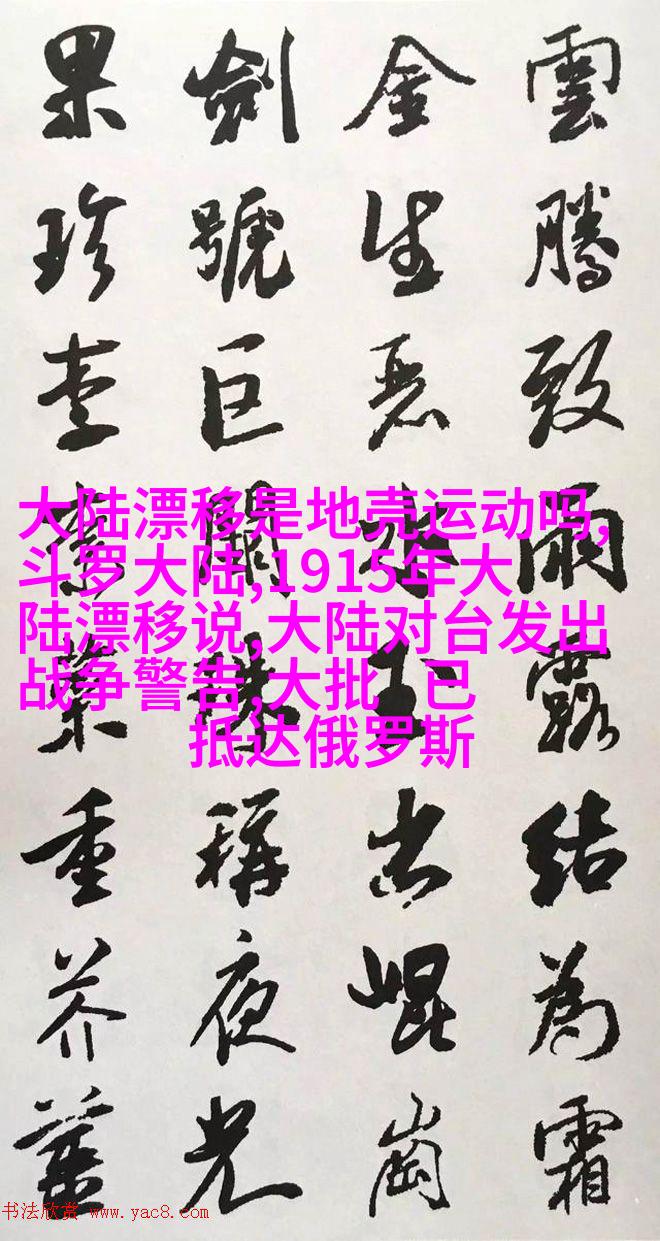 雲騰致雨露結為霜
金生麗水玉出崐崗
劍號巨闕珠稱夜光
果珍李柰菜重芥薑
大陆漂移是地壳运动吗,
斗罗大陆,1915年大
陆漂移说,大陆对台发出
战争警告,大批 已
抵达俄罗斯
书法欣赏 www.yac8.com